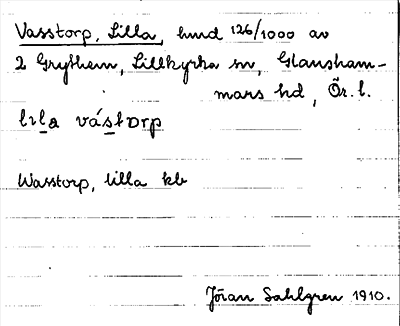 Vasstorp, Lilla, hmd 126/1000 av
2 Grythem, Lillkyrka sn, Glansham-
mars hd, Ör. l.
lɩla vástɒrp
Wasstorp, lilla kb
Jöran Sahlgren 1910.